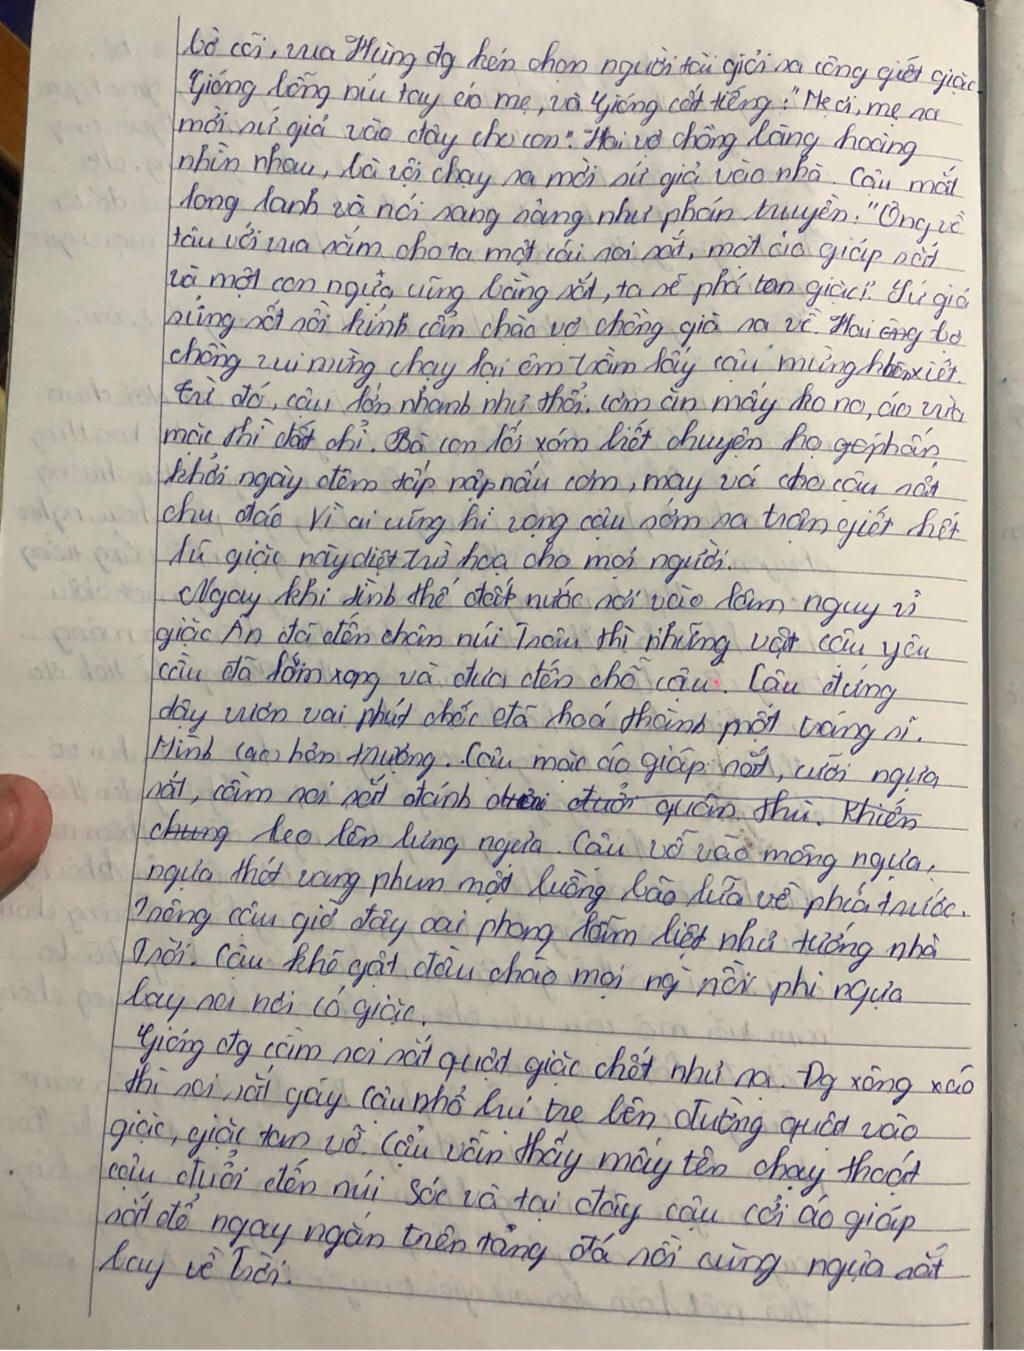 bờ cõi, vua Hùng đg kén chọn người tài giỏi ra công giết giặc.
Gióng bỗng níu tay áo mẹ, và Gióng cất tiếng: "Mẹ ơi, mẹ ra
mời sứ giả vào đây cho con". Hai vợ chồng bàng hoàng
nhìn nhau, bà vội chạy ra mời sứ giả vào nhà. Cậu mắt
long lanh và nói sang sảng như phán truyền: "Ông về
tâu với vua sắm cho ta một cái roi sắt, một áo giáp sắt
và một con ngựa cũng bằng sắt, ta sẽ phá tan giặc". Sứ giả
sửng sốt rồi kính cẩn chào vợ chồng già ra về. Hai ông bà
chồng vui mừng chạy lại ôm trầm lấy cậu mừng khônxiết.
Từ đó, cậu lớn nhanh như thổi, cơm ăn mấy ko no, áo vừa
mặc thì đứt chỉ. Bà con lối xóm biết chuyện họ phấn
khởi ngày đêm tấp nập nấu cơm, may vá cho cậu rất
chu đáo vì ai cũng hi vọng cậu sớm ra trận giết hết
lũ giặc này diệt trừ hoạ cho mọi người.
Ngay khi tình thế đất nước rơi vào lâm nguy vì
giặc Ân đã đến chân núi Trâu thì những vật cậu yêu
cầu đã làm xong và đưa đến chỗ cậu. Cậu đứng
dậy vươn vai phút chốc đã hoá thành một tráng sĩ.
Mình cao hơn trượng. Cậu mặc áo giáp sắt, cưỡi ngựa
sắt, cầm roi sắt đánh đuổi quân thù. Khiến
chung leo lên lưng ngựa. Cậu vỗ vào mông ngựa,
ngựa thét vang phun một luồng bão lửa về phía trước.
Trông cậu giờ đây oai phong lẫm liệt như tướng nhà
Trời. Cậu khẽ gật đầu chào mọi ng rồi phi ngựa
bay ra nơi có giặc.
Gióng đg cầm roi sắt quật giặc chết như rạ. Đg xông xáo
thì roi sắt gãy. Cậu nhổ bụi tre bên đường quật vào
giặc, giặc tan vỡ. Cậu vẫn thấy mấy tên chạy thoát
cậu đuổi đến núi Sóc và tại đây cậu cởi áo giáp
sắt để ngay ngắn trên tảng đá rồi cùng ngựa sắt
bay về trời.